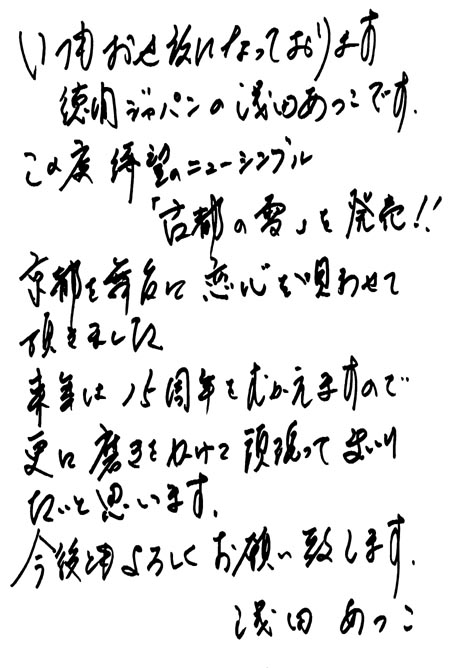 いつもお世話になっております
徳間ジャパンの浅田あつこです.
この度 待望のニューシングル
「古都の雪」を発売!!
京都を舞台に 恋心を唄わせて
頂きました
来年は 15周年をむかえますので
更に 磨きをかけて 頑張って まいり
たいと思います.
今後ともよろしくお願い致します.
浅田 あつこ